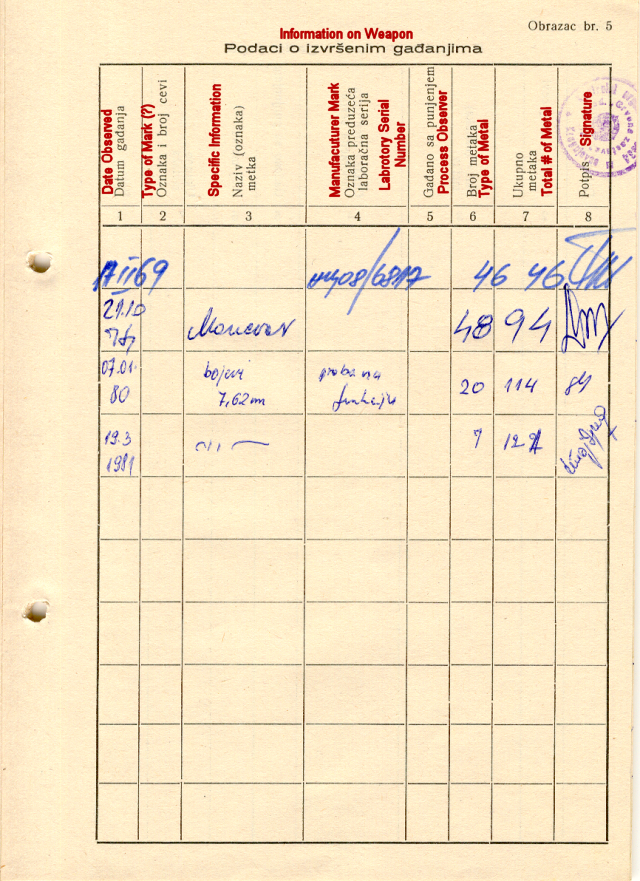 Obrazac br. 5
Information on Weapon
Podaci o izvršenim gađanjima
Date Observed
Datum gađanja
Type of Mark (?)
Oznaka i broj cevi
Specific Information
Naziv (oznaka)
metka
Manufacuturer Mark
Oznaka preduzeća
laboračna serija
Labrotory Serial
Number
Gađano sa punjenjem
Process Observer
Broj metaka
Type of Metal
Ukupno
metaka
Total # of Metal
Potpis
Signature
1 2 3 4 5 6 7 8
17 II 69 46 46
21.10 48 94
07.01. bojevi proba na
80 7,62mm funkciju 20 114
19.3 7 121
1981